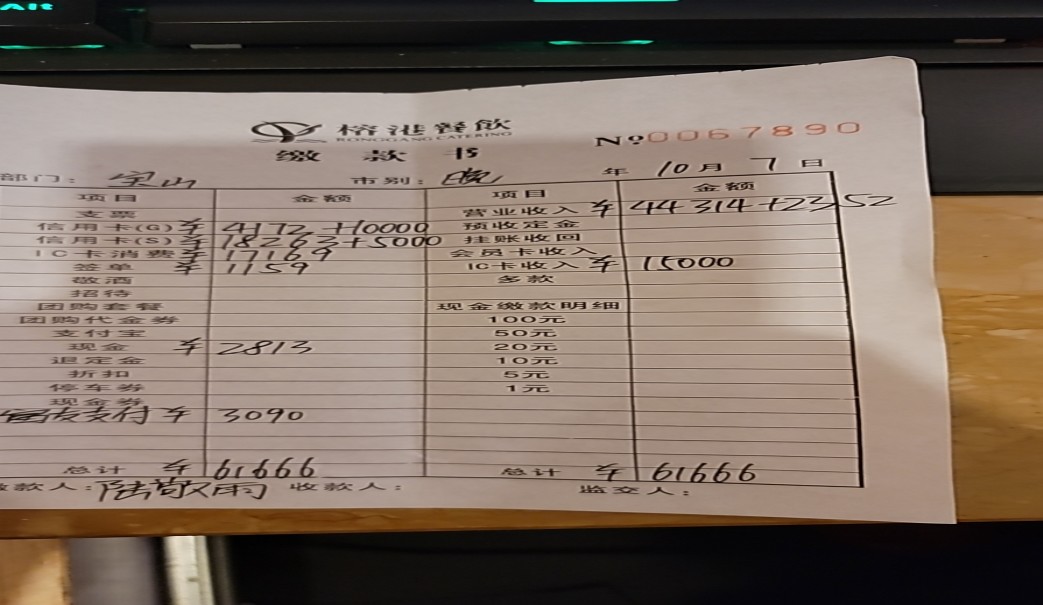 Alt
榕港餐飲
RONGGANG CATERING
缴款书
№0067890
部门: 宝山 市别: 晚 年 10月 7日
项目 金额 项目 金额
支票 营业收入 ¥ 44314+2352
信用卡(G) ¥ 4172+10000 预收定金
信用卡(S) ¥ 18263+5000 挂账收回
IC卡消费 ¥ 17169 会员卡收入
签单 ¥ 1159 IC卡收入 ¥ 15000
敬酒 多款
招待
团购套餐 现金缴款明细
团购代金券 100元
支付宝 50元
现金 ¥ 2813 20元
退定金 10元
折扣 5元
停车券 1元
现金券
支付 ¥ 3090
总计 ¥ 61666 总计 ¥ 61666
款人: 陆敬雨 收款人: 监交人: